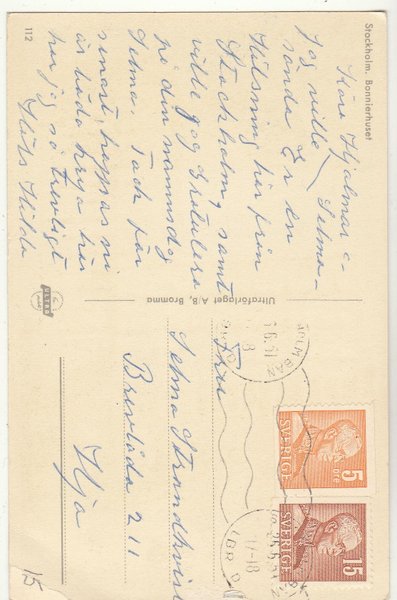 Stockholm. Bonnierhuset
Käre Hjalmar o.
Selma
Jag ville
sända Er en
Hälsning här från
Stockholm, samt
ville jag Gratulera
på din namnsdag
Selma. Tack för
senast, hoppas ni
är båda krya här
har jag så trevligt
Häls Hilda
112
Ultraförlaget A/B, Bromma
ULTRA
Fru
Selma Strandkvist
Brevlåda 211
Ilja
15
SVERIGE
5
ÖRE
SVERIGE
15
17-18